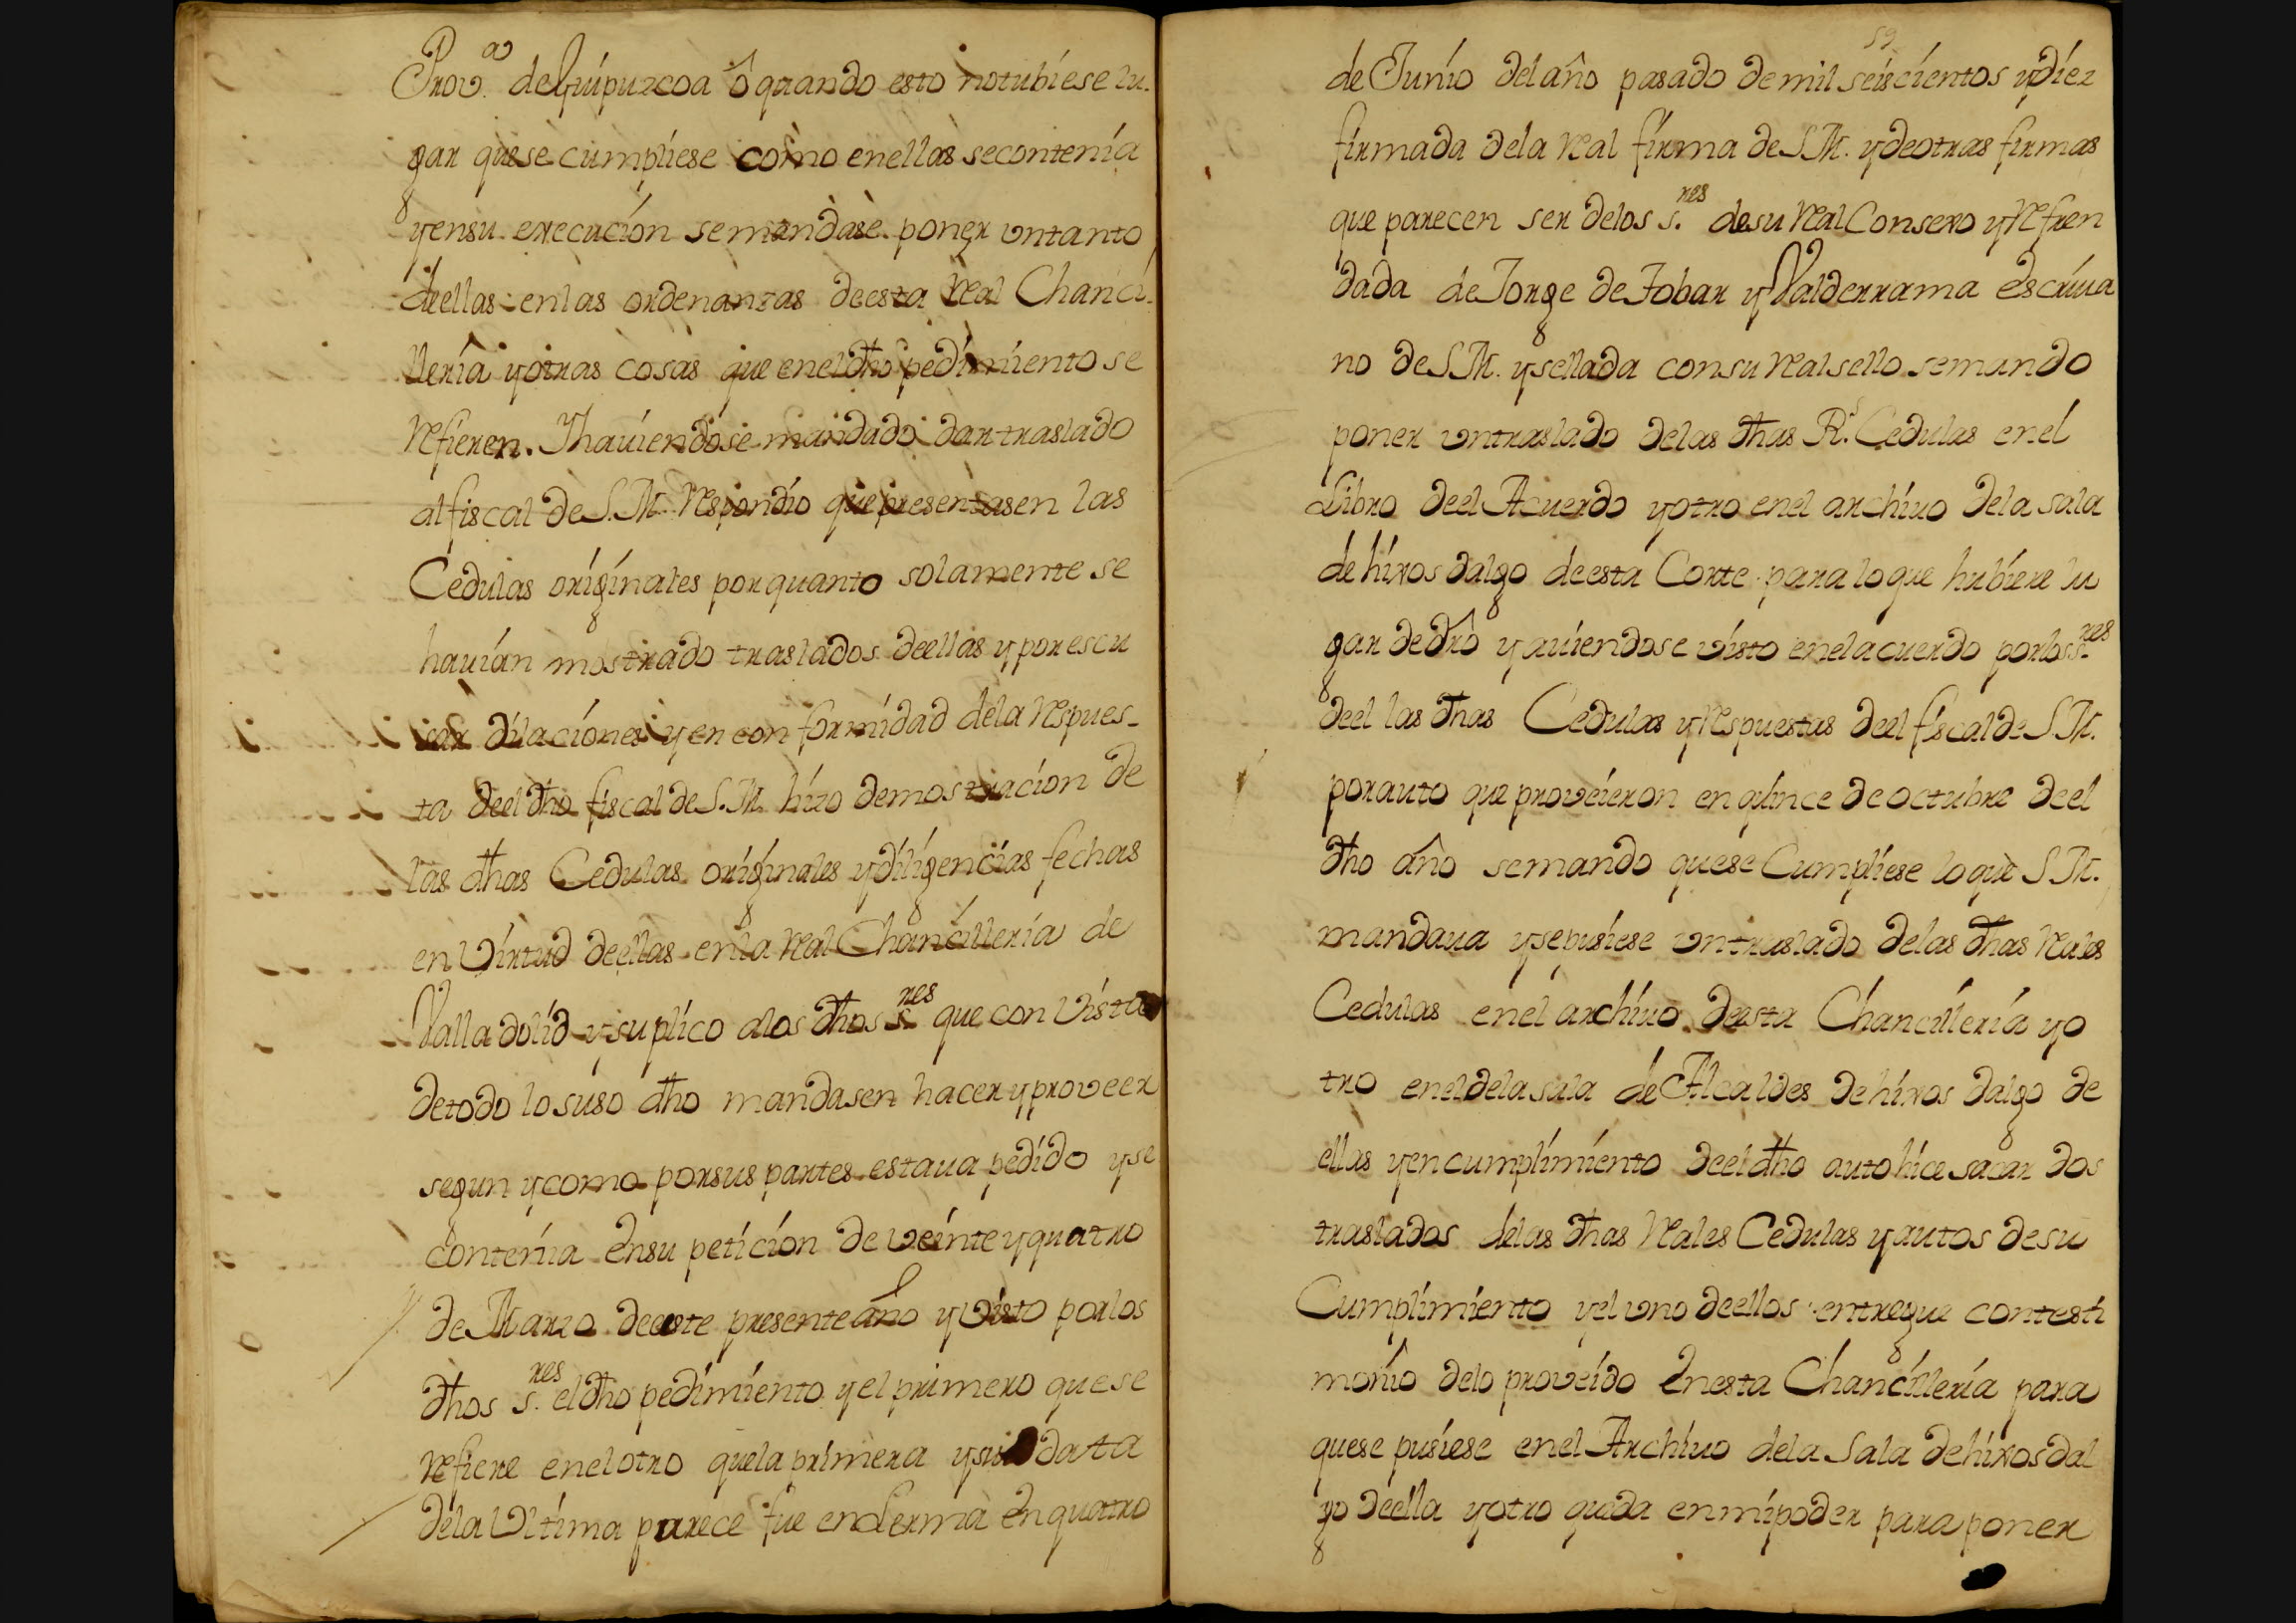 Prov.ª de Guipuzcoa ô quando esto no tubiese lu-
gar que se cumpliese como en ellas se contenía
y en su execucíon se mandase poner vn tanto
de ellas en las ordenanzas de esta Real Chanci-
llería y otras cosas que en el dho pedimiento se
Refieren. Y hauíendose mandado dar traslado
al fiscal de S. M. Respondío que presentasen las
Cedulas origínales por quanto solamente se
hauían mostrado traslados de ellas y por escu
sar dilaciones y en conformidad de la Respues-
ta de el dho fiscal de S. M. hizo demostracion de
las dhas Cedulas originales y diligencias fechas
en Virtud de ellas en la Real Chancilleria de
Valladolid y suplico a los dhos s.res que con Vista
de todo lo suso dho mandasen hacer y proveer
segun y como por sus partes estaua pedido y se
contenia en su petición de veinte y quatro
de Marzo de este presente año y Visto por los
dhos s.res el dho pedimiento y el primero que se
Refiere en el otro que la primera y su data
de la Vltima parece fue en Lerma en quatro
59
de Junio del año pasado de mil seiscientos y diez
firmada de la Real firma de S. M. y de otras firmas
que parecen ser de los s.res de su Real Consexo y Refren
dada de Jorge de Tobar y Valderrama escriua
no de S. M. y sellada con su Real sello se mando
poner vn traslado de las dhas R.s Cedulas en el
Libro de el Acuerdo y otro en el archiuo de la sala
de hixos dalgo de esta Corte para lo que hubiere lu
gar de dro y auiendose visto en el acuerdo por los s.res
de el las dhas Cedulas y Respuestas de el fiscal de S. M.
por auto que proveieron en quince de octubre de el
dho año se mando que se Cumpliese lo que S. M.
mandaua y se pusiese vn traslado de las dhas Reales
Cedulas en el archiuo de esta Chancillería y o
tro en el de la sala de Alcaldes de hixos dalgo de
ellas y en cumplimiento de el dho auto hice sacar dos
traslados de las dhas Reales Cedulas y autos de su
Cumplimiento y el vno de ellos entregue con testi
monio de lo proveido en esta Chancillería para
que se pusiese en el Archiuo de la Sala de hixos dal
go de ella y otro queda en mi poder para poner